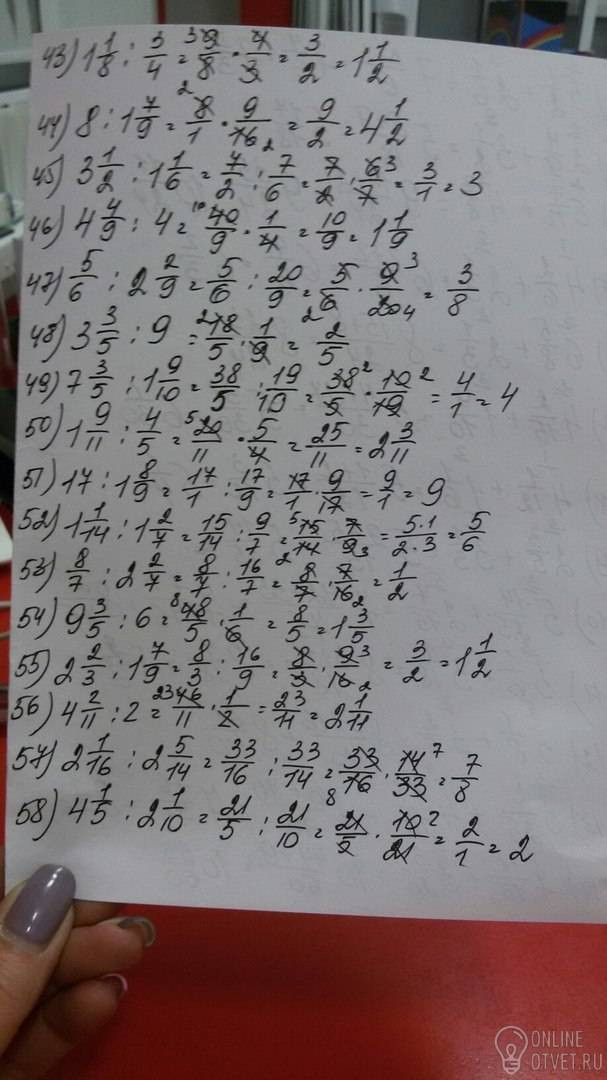 43) 1 1/8 : 3/4 = 9/8 · 4/3 = 3/2 = 1 1/2
44) 8 : 1 7/9 = 8/1 · 9/16 = 9/2 = 4 1/2
45) 3 1/2 : 1 1/6 = 7/2 : 7/6 = 7/2 · 6/7 = 3/1 = 3
46) 4 4/9 : 4 = 40/9 · 1/4 = 10/9 = 1 1/9
47) 5/6 : 2 2/9 = 5/6 : 20/9 = 5/6 · 9/20 = 3/8
48) 3 3/5 : 9 = 18/5 · 1/9 = 2/5
49) 7 3/5 : 1 9/10 = 38/5 : 19/10 = 38/5 · 10/19 = 4/1 = 4
50) 1 9/11 : 4/5 = 20/11 · 5/4 = 25/11 = 2 3/11
51) 17 : 1 8/9 = 17/1 : 17/9 = 17/1 · 9/17 = 9/1 = 9
52) 1 1/14 : 1 2/7 = 15/14 : 9/7 = 15/14 · 7/9 = 5·1/2·3 = 5/6
53) 8/7 : 2 2/7 = 8/7 : 16/7 = 8/7 · 7/16 = 1/2
54) 9 3/5 : 6 = 48/5 · 1/6 = 8/5 = 1 3/5
55) 2 2/3 : 1 7/9 = 8/3 : 16/9 = 8/3 · 9/16 = 3/2 = 1 1/2
56) 4 2/11 : 2 = 46/11 · 1/2 = 23/11 = 2 1/11
57) 2 1/16 : 2 5/14 = 33/16 : 33/14 = 33/16 · 14/33 = 7/8
58) 4 1/5 : 2 1/10 = 21/5 : 21/10 = 21/5 · 10/21 = 2/1 = 2
ONLINE
OTVET.RU